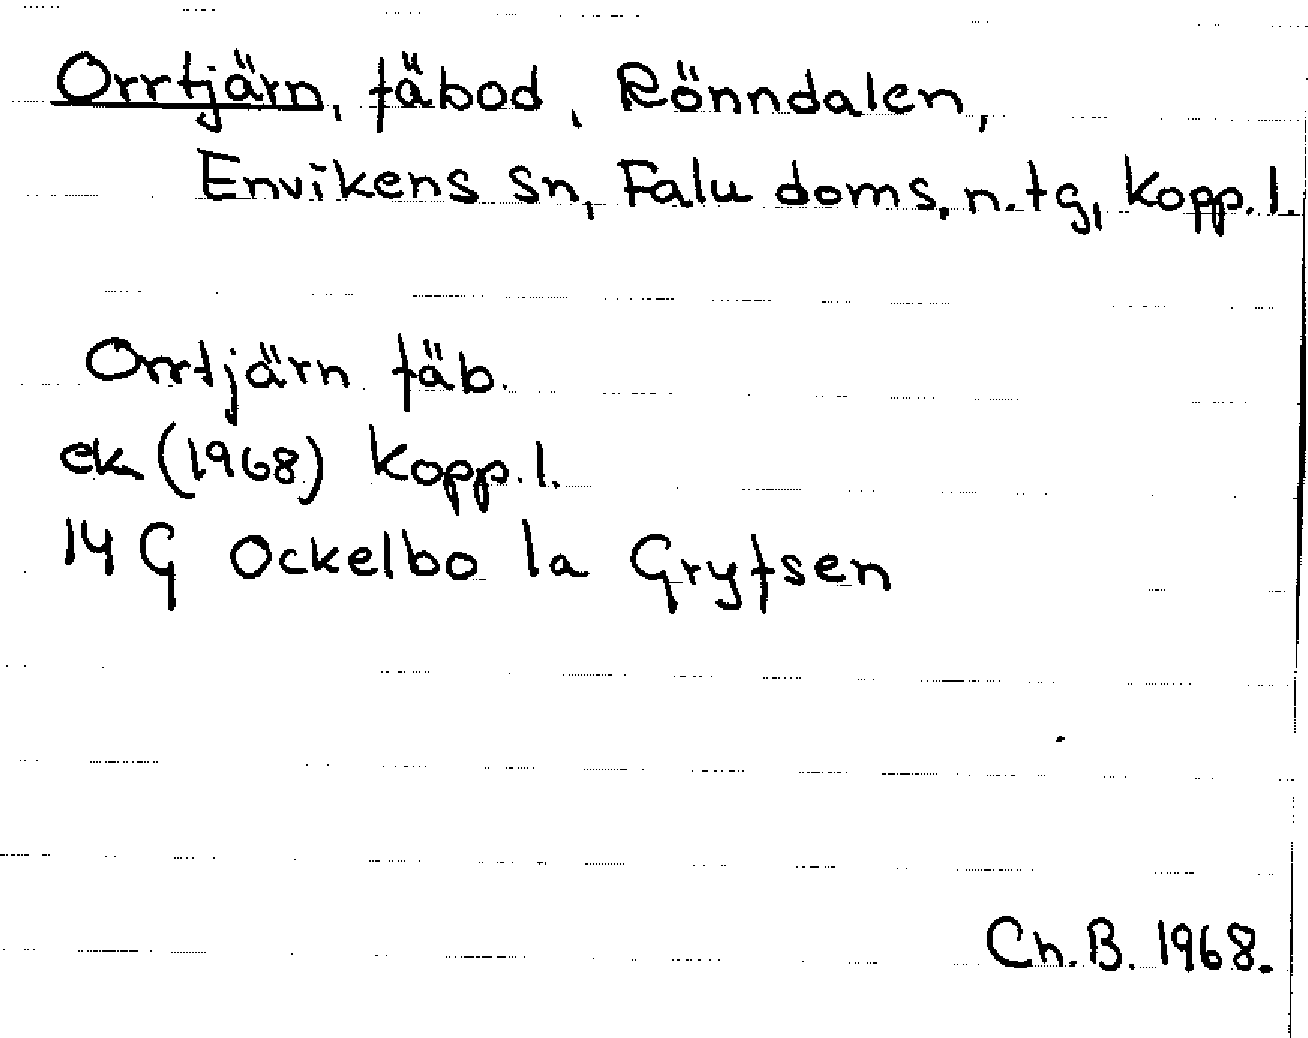 Orrtjärn, fäbod, Rönndalen,
Envikens sn, Falu doms. n. tg, Kopp. l.
Orrtjärn fäb.
ek (1968) Kopp. l.
14 G Ockelbo 1a Grytsen
Ch. B. 1968.